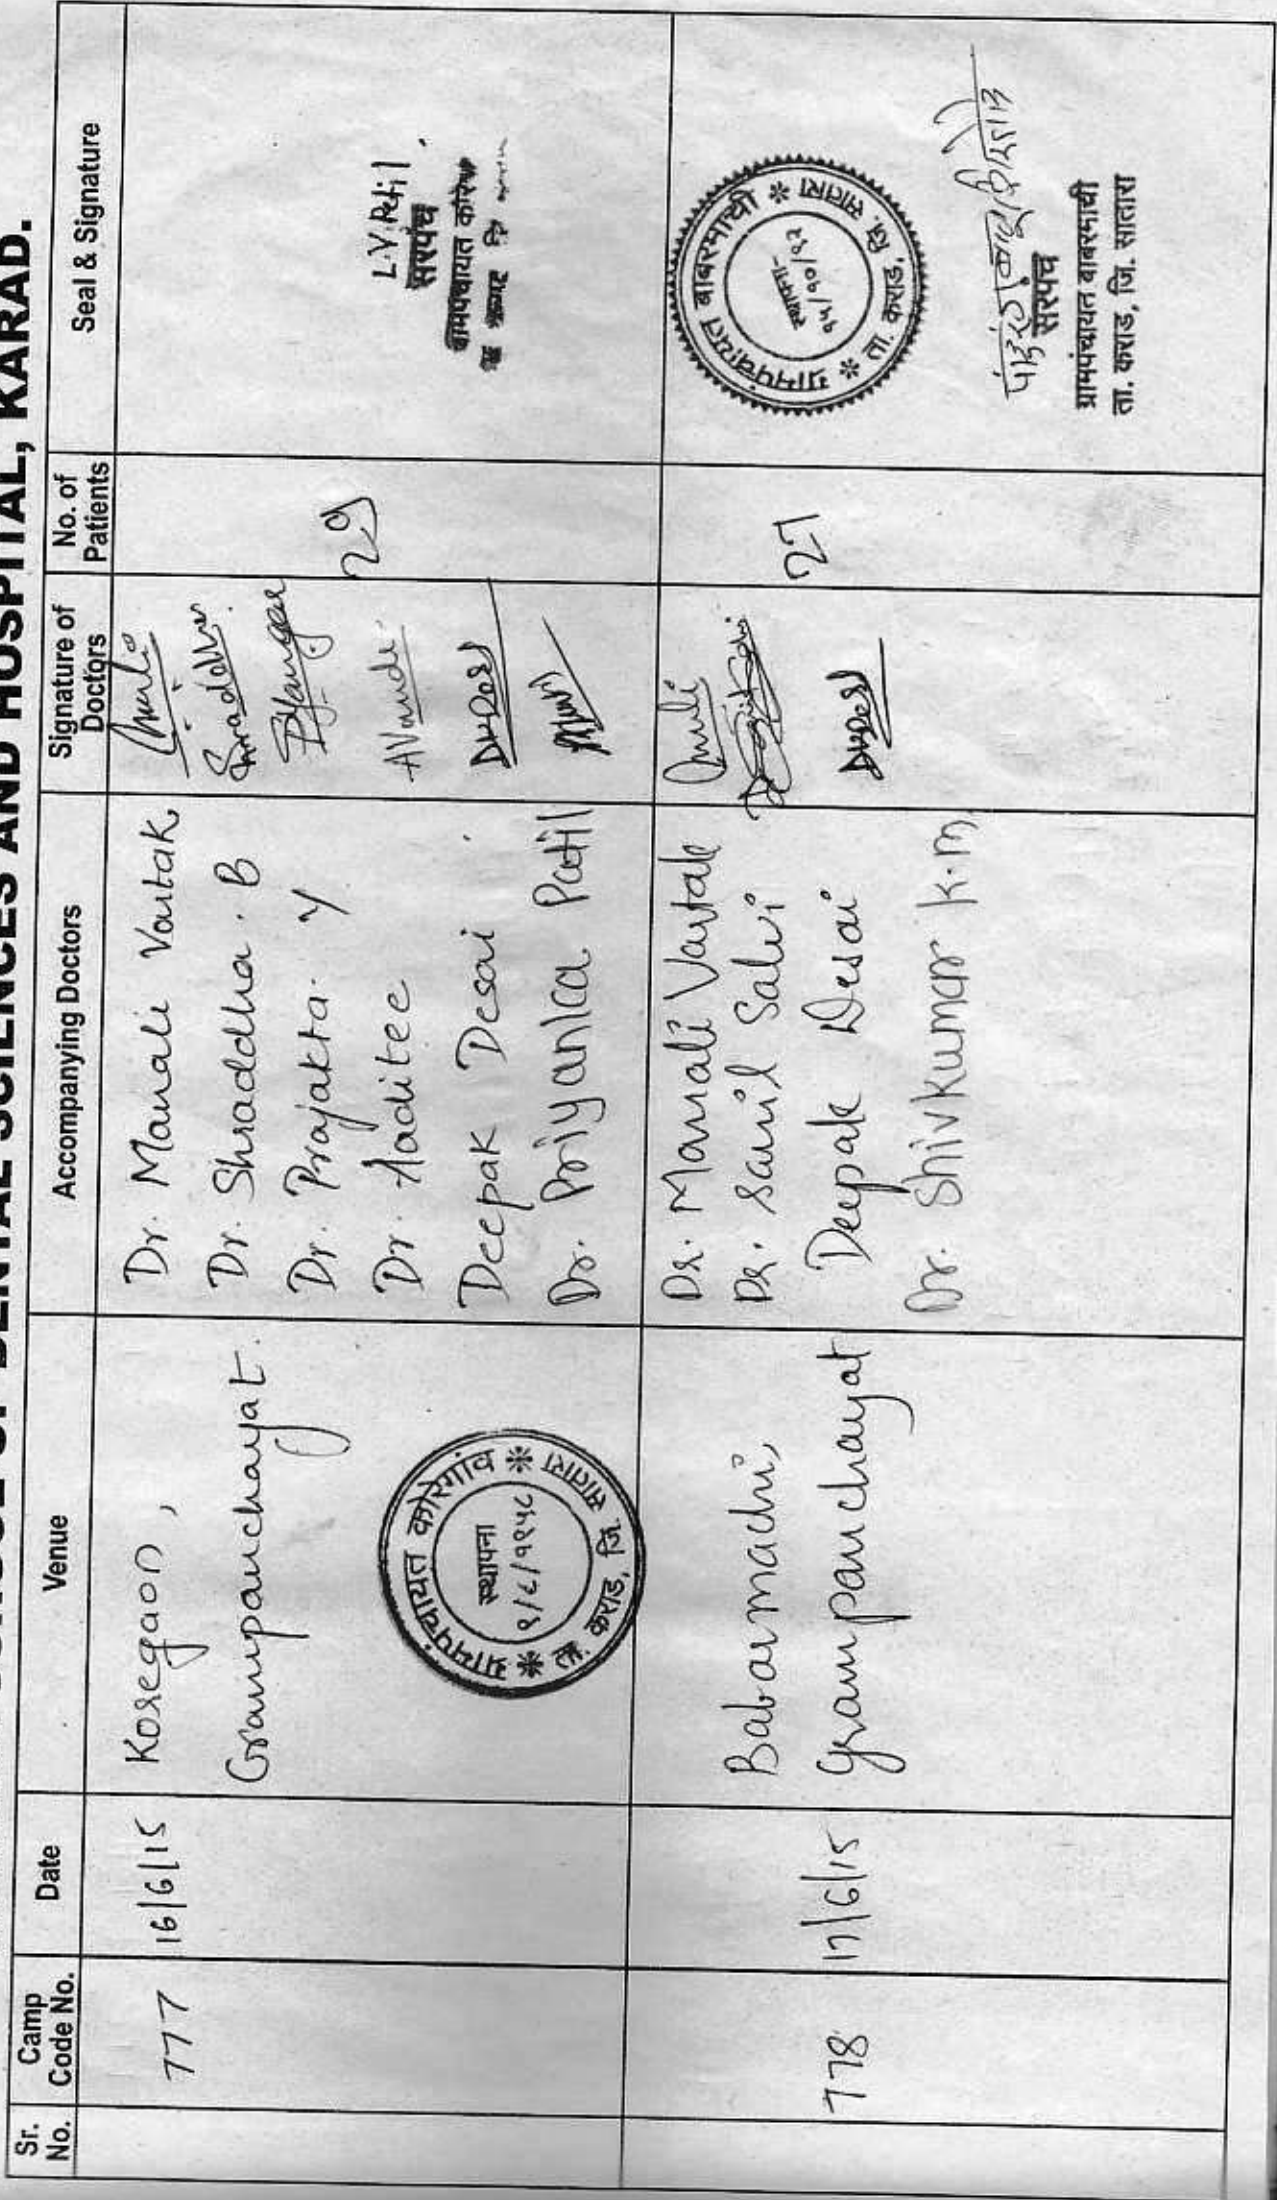 OF DENTAL SCIENCES AND HOSPITAL, KARAD.
Sr. No.
Camp Code No.
Date
Venue
Accompanying Doctors
Signature of Doctors
No. of Patients
Seal & Signature
777
16/6/15
Koregaon,
Grampanchayat.
ग्रामपंचायत कोरेगांव
स्थापना
१/८/१९५८
कराड, जि. सातारा
Dr. Manali Vartak
Dr. Shraddha. B
Dr. Prajakta. Y
Dr. Aaditee
Deepak Desai.
Dr. Priyanka Patil
Shraddha
29
L.V. Patil.
सरपंच
778
17/6/15
Babarmachi,
Grampanchayat
Dr. Manali Vartak
Dr. Sanil Salvi
Deepak Desai
Dr. Shivkumar K.M.
27
ग्रामपंचायत बाबरमाची
स्थापना-
१५/१०/९२
ता. कराड, जि. सातारा
सरपंच
ग्रामपंचायत बाबरमाची
ता. कराड, जि. सातारा